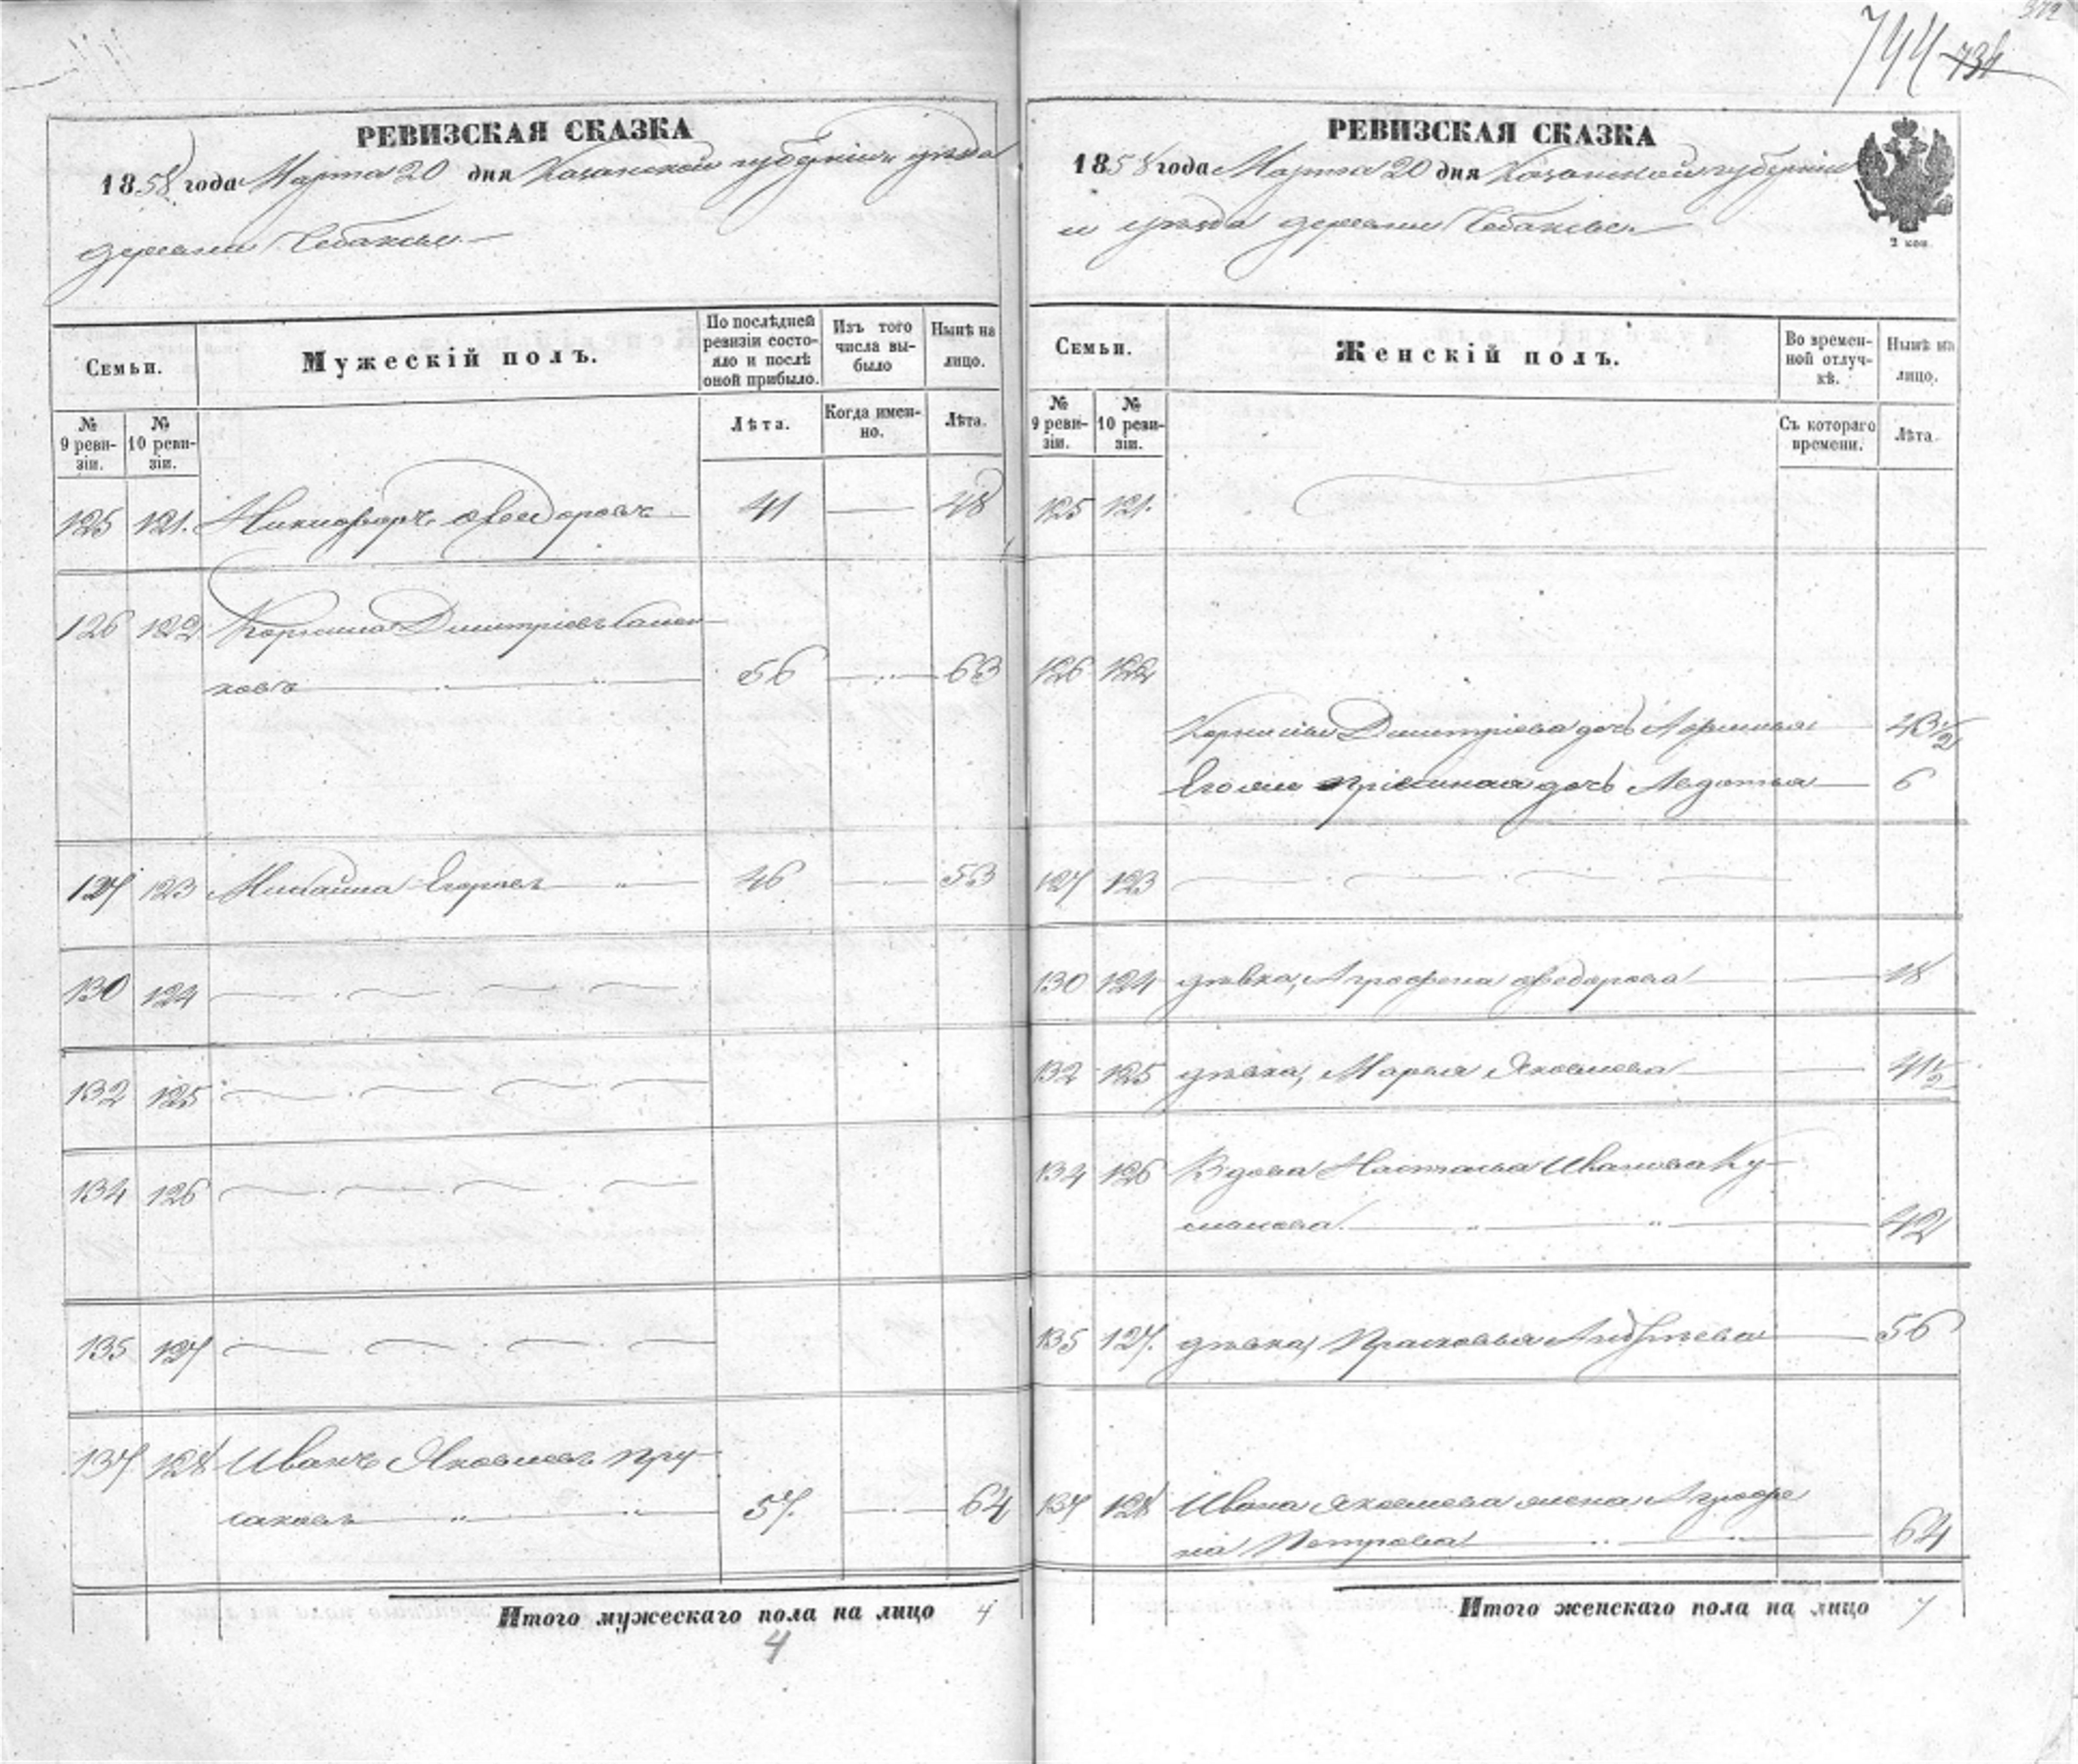 372
744 734
РЕВИЗСКАЯ СКАЗКА
1858 года Марта 20 дня Казанской губерніи уѣзда
деревни Чебаксы
Семьи.
Мужескій полъ.
По послѣдней ревизіи состояло и послѣ оной прибыло.
Изъ того числа выбыло
Нынѣ на лицо.
№ 9 ревизіи.
№ 10 ревизіи.
Лѣта.
Когда именно.
Лѣта.
125 121. Никифоръ Ѳедоровъ 41 — 48
126 122 Дмитріевъ
ковъ 56 — 63
127 123 Михайла Егоровъ 46 — 53
130 124
132 125
134 126
135 127
137. 128 Иванъ Яковлевъ Пру-
саковъ 57. — 64
Итого мужескаго пола на лицо 4
4
РЕВИЗСКАЯ СКАЗКА
1858 года Марта 20 дня Казанской губерніи
и уѣзда деревни Чебаксы
2 коп.
Семьи.
Женскій полъ.
Во временной отлучкѣ.
Нынѣ на лицо.
№ 9 ревизіи.
№ 10 ревизіи.
Съ котораго времени.
Лѣта.
125 121.
126 122
Дмитріева дочь 43 1/2
дочь Авдотья — 6
127 123
130 124 дѣвка, Аграфена Ѳедорова — 18
132 125 дѣвка, Марья Яковлева — 41 1/2
134 126 Вдова Настасья Иванова Ку-
42
135 127. дѣвка, Прасковья Андреева — 56
137 128 Ивана Яковлева жена Аграфе
на Петрова 64
Итого женскаго пола на лицо 7